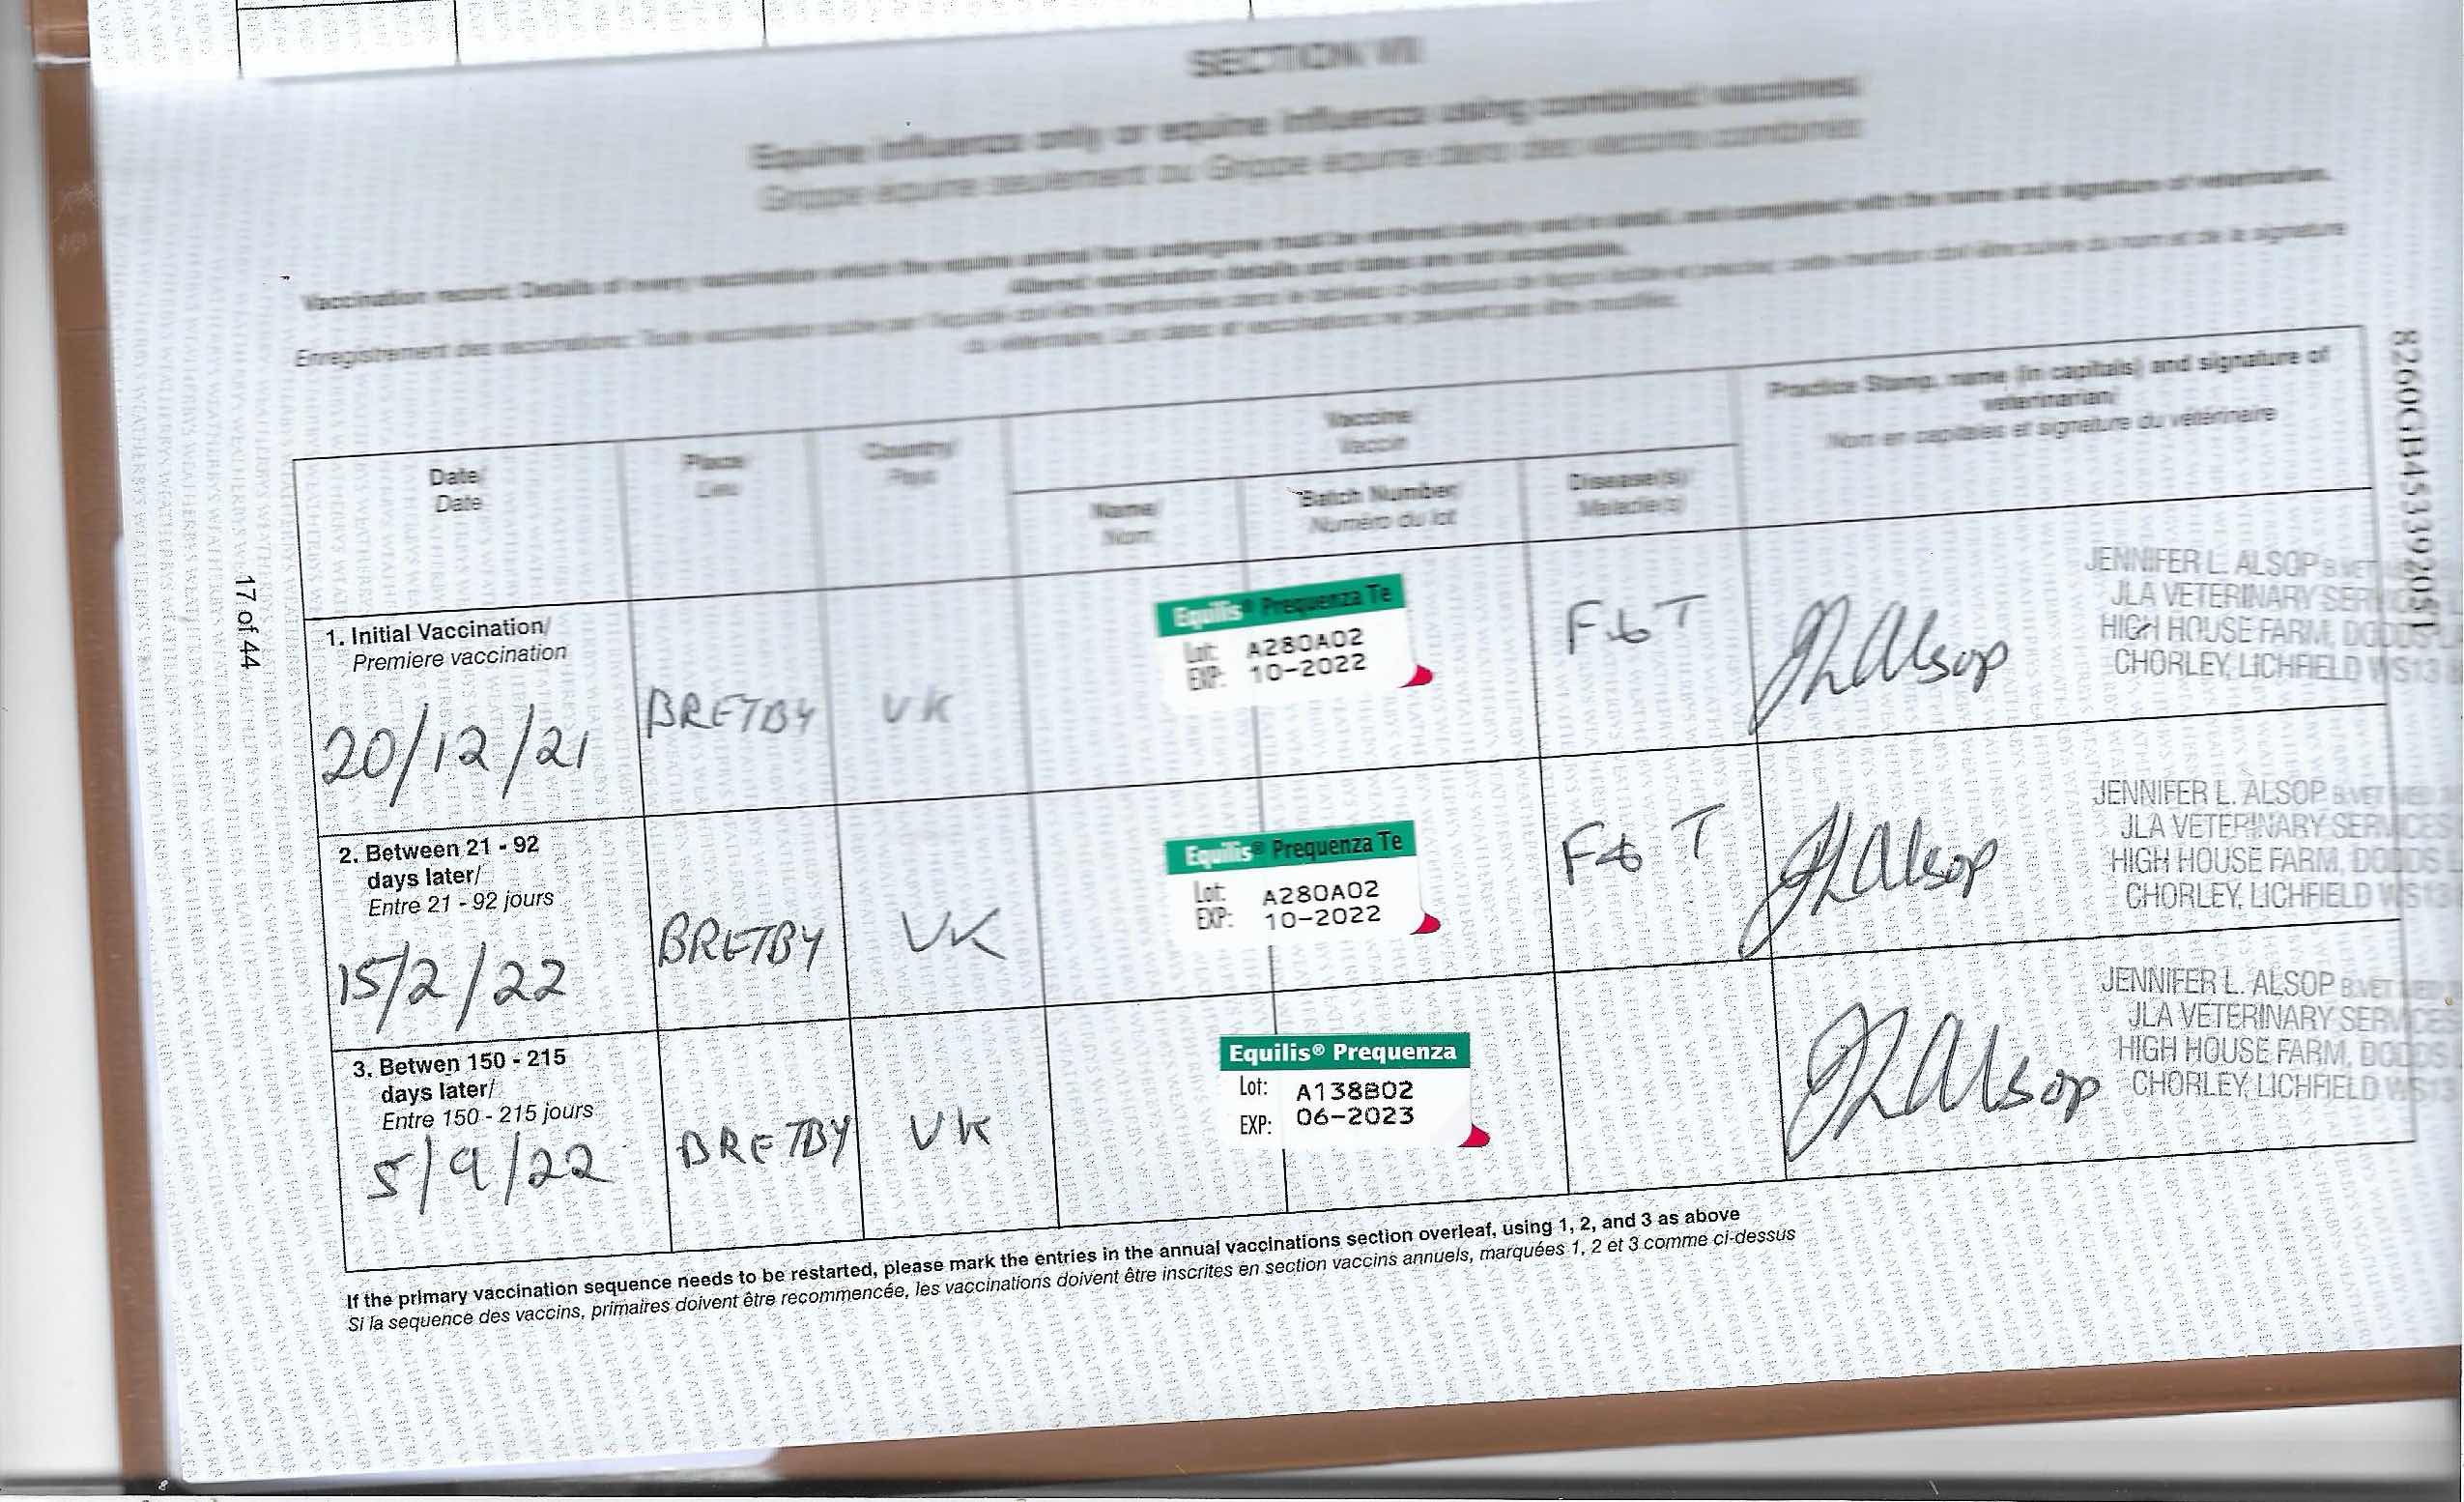 SECTION VII
Equine influenza only or equine influenza using combined vaccines
Grippe équine seulement ou Grippe équine dans des vaccins combinés
Vaccination record: Details of every vaccination which the equine animal has undergone must be entered clearly and in detail, and completed with the name and signature of veterinarian.
Altered vaccination details and dates are not acceptable.
Enregistrement des vaccinations: Toute vaccination subie par l'équidé doit être mentionnée dans le tableau ci-dessous de façon lisible et précise, cette mention doit être suivie du nom et de la signature
du vétérinaire. Les dates et vaccinations ne peuvent pas être modifiés.
Date/
Date
Place/
Lieu
Country/
Pays
Vaccine/
Vaccin
Name/
Nom
Batch Number/
Numéro du lot
Disease(s)/
Maladie(s)
Practice Stamp, name (in capitals) and signature of
veterinarian/
Nom en capitales et signature du vétérinaire
1. Initial Vaccination/
Premiere vaccination
20/12/21
BRETBY
UK
Equilis® Prequenza Te
Lot: A280A02
EXP: 10-2022
F & T
JLAlsop
JENNIFER L. ALSOP B.VET
JLA VETERINARY SERVICES
HIGH HOUSE FARM, DODDS
CHORLEY, LICHFIELD WS13
2. Between 21 - 92
days later/
Entre 21 - 92 jours
15/2/22
BRETBY
UK
Equilis® Prequenza Te
Lot: A280A02
EXP: 10-2022
F & T
JLAlsop
JENNIFER L. ALSOP B.VET MED
JLA VETERINARY SERVICES
HIGH HOUSE FARM, DODDS
CHORLEY, LICHFIELD WS13
3. Betwen 150 - 215
days later/
Entre 150 - 215 jours
5/9/22
BRETBY
UK
Equilis® Prequenza
Lot: A138B02
EXP: 06-2023
JLAlsop
JENNIFER L. ALSOP B.VET MED
JLA VETERINARY SERVICES
HIGH HOUSE FARM, DODDS
CHORLEY, LICHFIELD WS13
If the primary vaccination sequence needs to be restarted, please mark the entries in the annual vaccinations section overleaf, using 1, 2, and 3 as above
Si la sequence des vaccins, primaires doivent être recommencée, les vaccinations doivent être inscrites en section vaccins annuels, marquées 1, 2 et 3 comme ci-dessus
17 of 44
8260GB45339205L